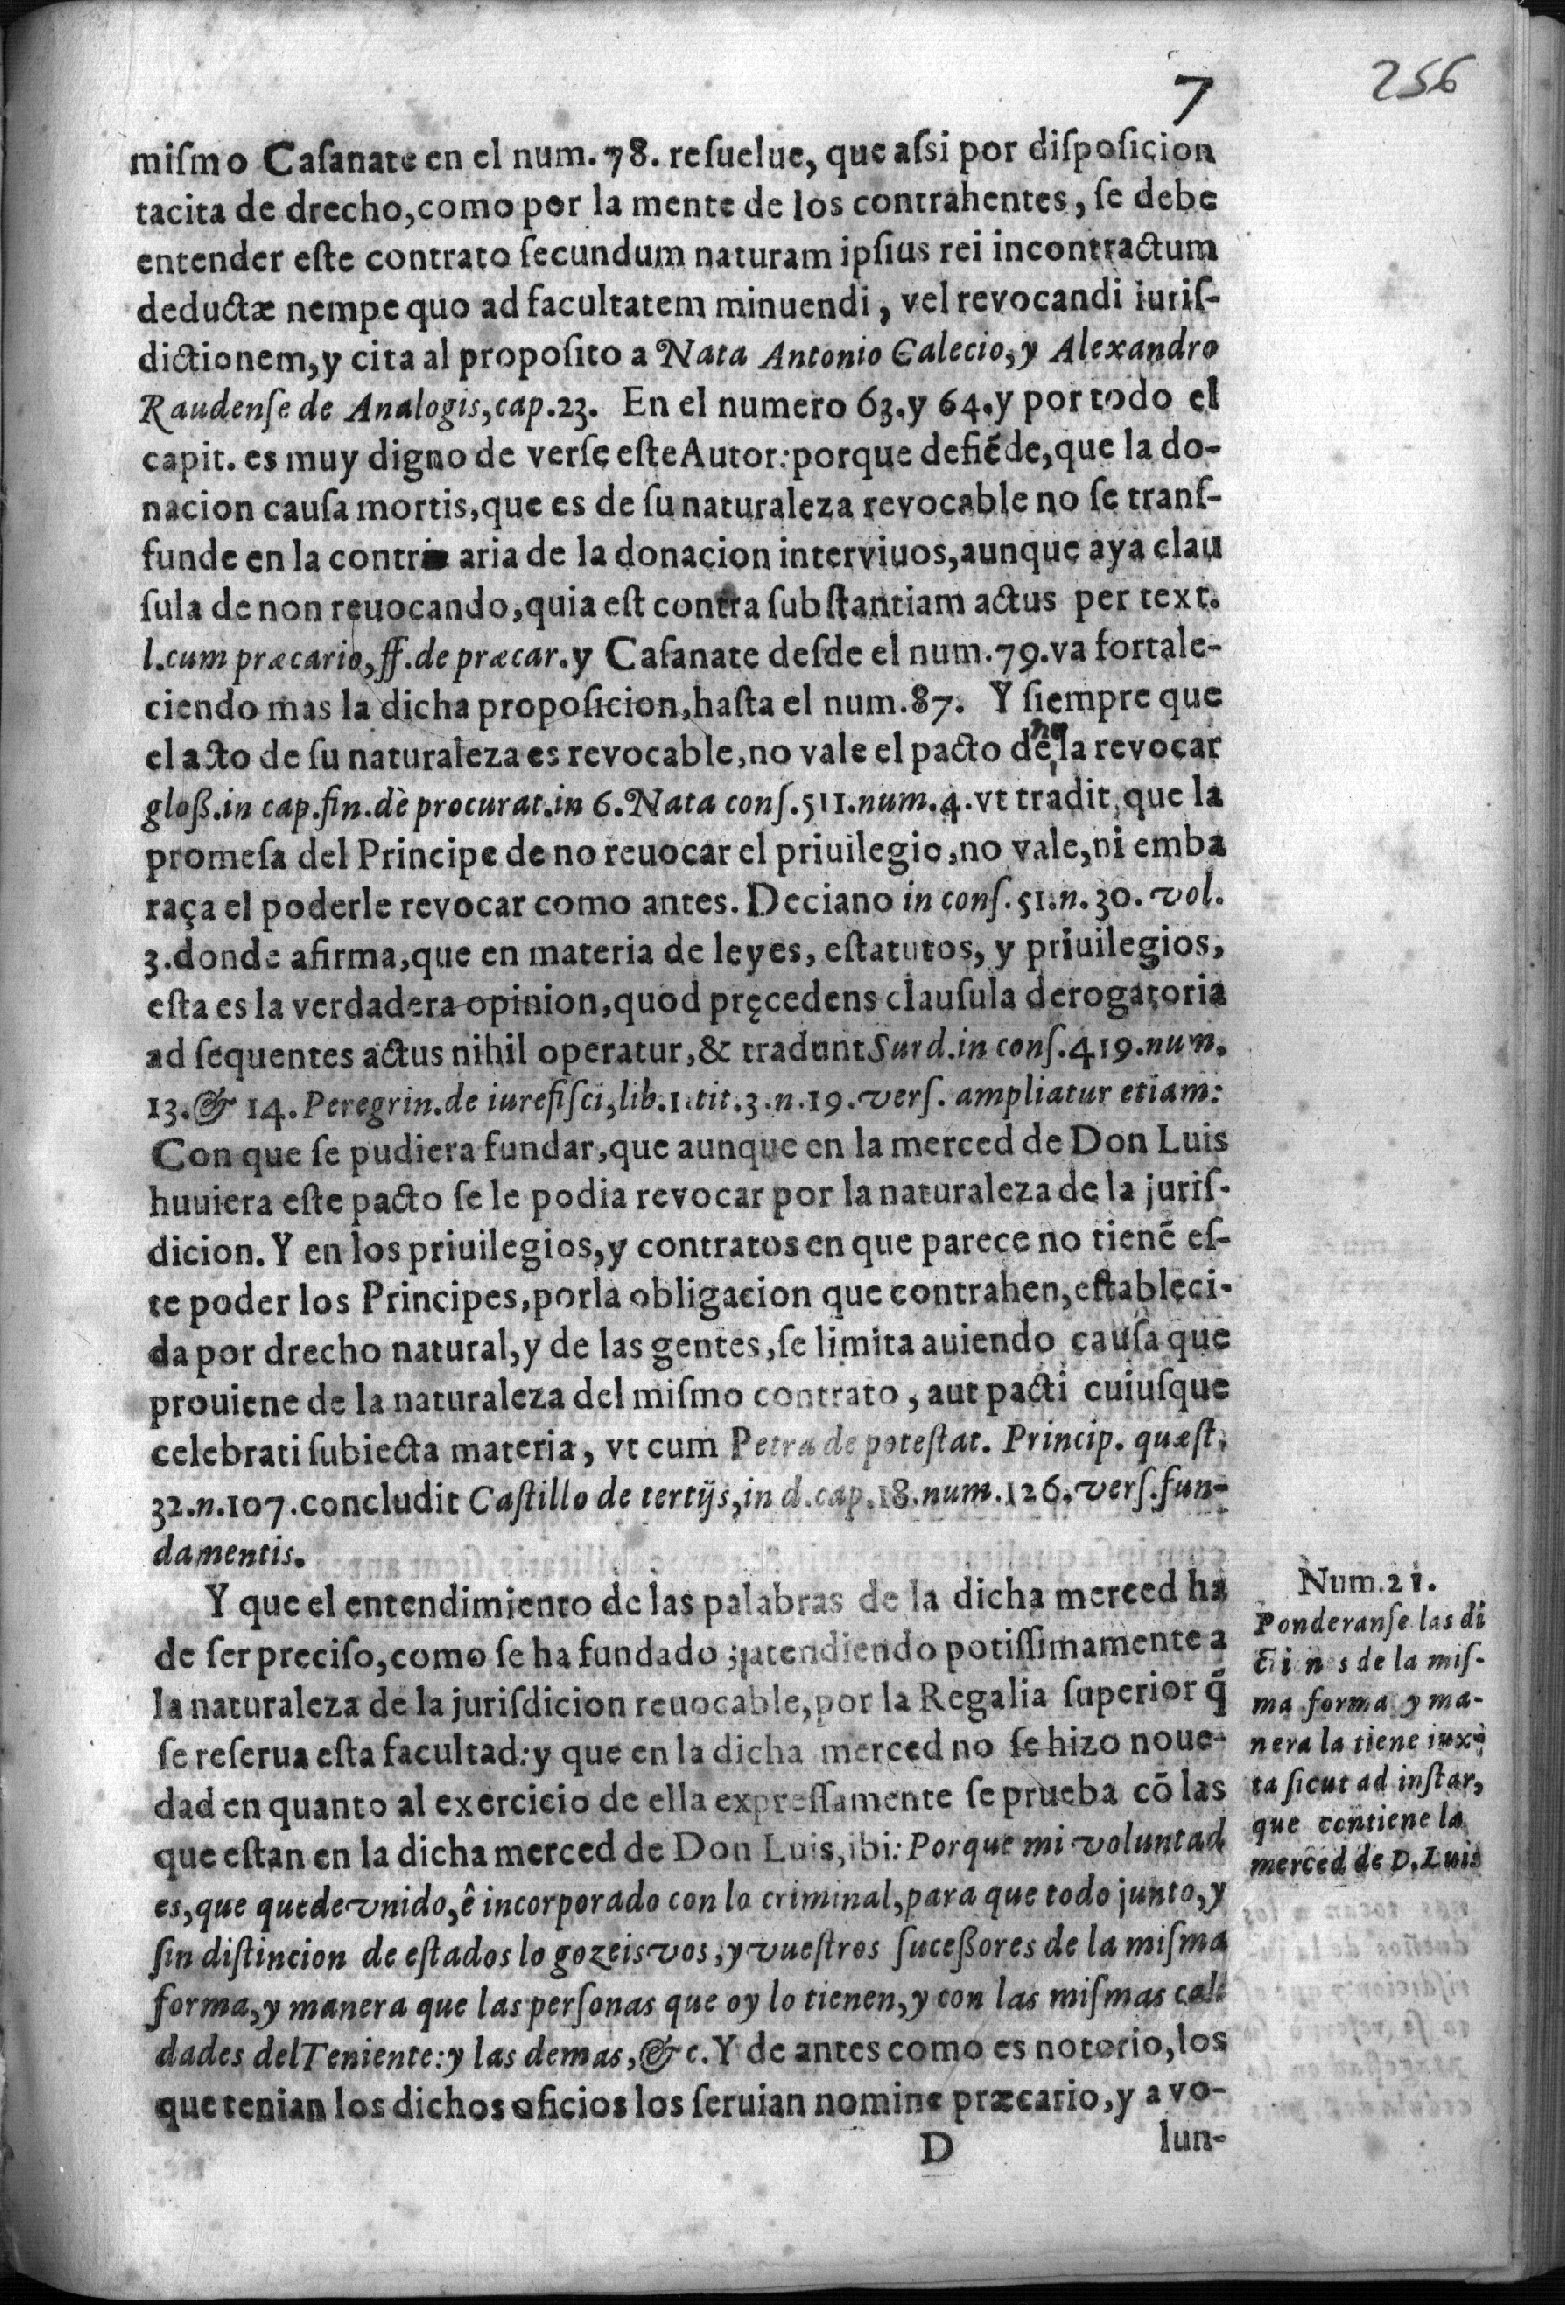 7
256
miſmo Caſanate en el num. 78. reſuelue, que aſsi por diſpoſicion
tacita de drecho, como por la mente de los contrahentes, ſe debe
entender eſte contrato ſecundum naturam ipſius rei incontractum
deductæ nempe quo ad facultatem minuendi, vel revocandi iuriſ-
dictionem, y cita al propoſito a Nata Antonio Galecio, y Alexandro
Raudenſe de Analogis, cap. 23. En el numero 63. y 64. y por todo el
capit. es muy digno de verſe eſte Autor: porque defiēde, que la do-
nacion cauſa mortis, que es de ſu naturaleza revocable no ſe tranſ-
funde en la contri aria de la donacion interviuos, aunque aya clau
ſula de non reuocando, quia eſt contra ſubſtantiam actus per text.
l. cum præcario, ff. de præcar. y Caſanate deſde el num. 79. va fortale-
ciendo mas la dicha propoſicion, haſta el num. 87. Y ſiempre que
el acto de ſu naturaleza es revocable, no vale el pacto de no la revocar
gloß. in cap. fin. de procurat. in 6. Nata conſ. 511. num. 4. vt tradit, que la
promeſa del Principe de no reuocar el priuilegio, no vale, ni emba
raça el poderle revocar como antes. Deciano in conſ. 51. n. 30. vol.
3. donde afirma, que en materia de leyes, eſtatutos, y priuilegios,
eſta es la verdadera opinion, quod pręcedens clauſula derogatoria
ad ſequentes actus nihil operatur, & tradunt Surd. in conſ. 419. num.
13. & 14. Peregrin. de iure fiſci, lib. 1. tit. 3. n. 19. verſ. ampliatur etiam:
Con que ſe pudiera fundar, que aunque en la merced de Don Luis
huuiera eſte pacto ſe le podia revocar por la naturaleza de la juriſ-
dicion. Y en los priuilegios, y contratos en que parece no tienē eſ-
te poder los Principes, por la obligacion que contrahen, eſtableci-
da por drecho natural, y de las gentes, ſe limita auiendo cauſa que
prouiene de la naturaleza del miſmo contrato, aut pacti cuiuſque
celebrati ſubiecta materia, vt cum Petra de poteſtat. Princip. quæſt.
32. n. 107. concludit Caſtillo de tertijs, in d. cap. 18. num. 126. verſ. fun-
damentis.
Y que el entendimiento de las palabras de la dicha merced ha
de ſer preciſo, como ſe ha fundado; atendiendo potiſſimamente a
la naturaleza de la juriſdicion reuocable, por la Regalia ſuperior q̄
ſe reſerua eſta facultad: y que en la dicha merced no ſe hizo noue-
dad en quanto al exercicio de ella expreſſamente ſe prueba cō las
que eſtan en la dicha merced de Don Luis, ibi: Porque mi voluntad
es, que quede vnido, ê incorporado con lo criminal, para que todo junto, y
ſin diſtincion de eſtados lo gozeis vos, y vueſtros ſuceßores de la miſma
forma, y manera que las perſonas que oy lo tienen, y con las miſmas cali
dades del Teniente: y las demas, &c. Y de antes como es notorio, los
que tenian los dichos oficios los ſeruian nomine præcario, y a vo-
D
lun-
Num. 21.
Ponderanſe las di
de la miſ-
ma forma y ma-
nera la tiene iux-
ta ſicut ad inſtar,
que contiene la
merced de D. Luis